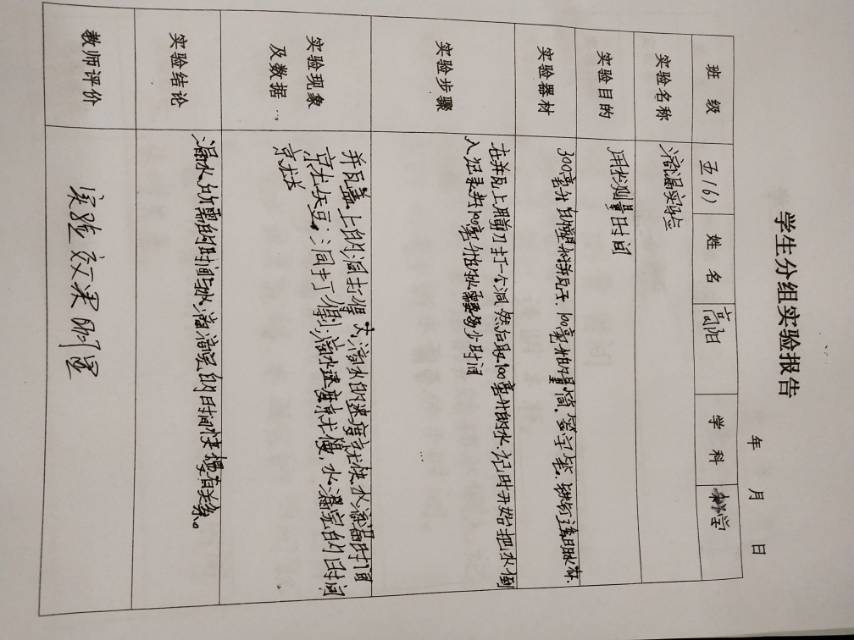 学生分组实验报告
年 月 日
班级 五(6) 姓名 高阳 学科 科学
实验名称 滴漏实验
实验目的 用水测量时间
实验器材 300毫升的塑料瓶
实验步骤 在瓶瓦上用剪刀打一个洞 然后取100毫升的水,记时开始把水倒
入 记录 100毫升 水需要多少时间
实验现象
及数据
瓶瓦盖上的洞打得大,滴水的速度就快水滴漏时间
就短;洞打得小,滴水速度就慢,水漏完的时间
就长
实验结论 漏水的需的时间与水滴漏完的时间快慢有关系。
教师评价 实验效果明显